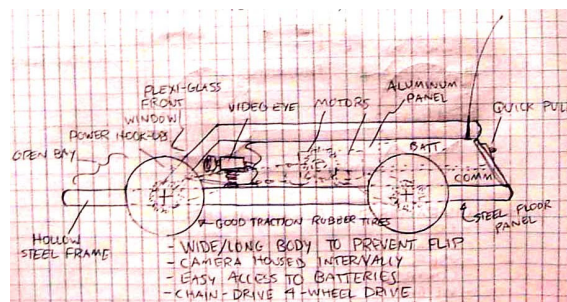 PLEXI-GLASS
FRONT
WINDOW
VIDEO EYE
MOTORS
ALUMINUM
PANEL
QUICK PULL
POWER HOOK-UPS
OPEN BAY
BATT.
COMM
HOLLOW
STEEL FRAME
GOOD TRACTION RUBBER TIRES
STEEL FLOOR
PANEL
- WIDE/LONG BODY TO PREVENT FLIP
- CAMERA HOUSED INTERNALLY
- EASY ACCESS TO BATTERIES
- CHAIN-DRIVE 4-WHEEL DRIVE